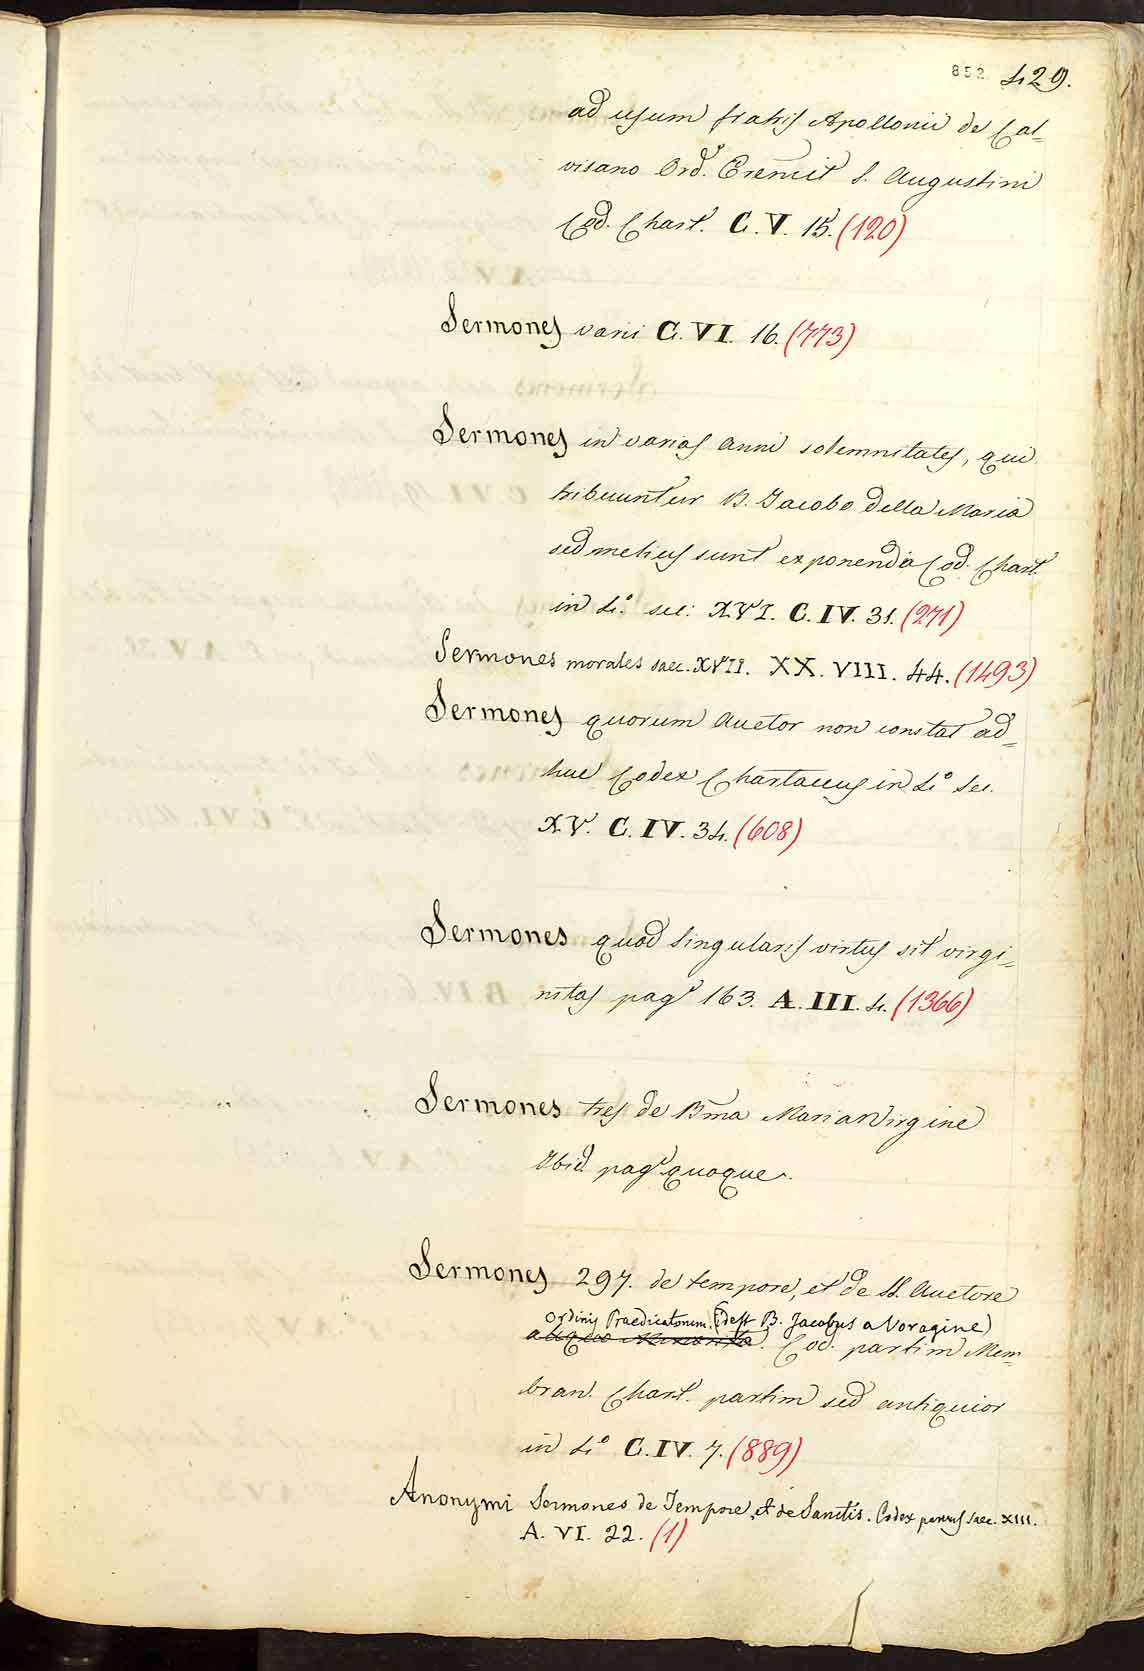 852 429.
ad usum fratris Apollonii de Cal=
visano Ord. Eremit S. Augustini
Cod. Chart. C. V. 15. (120)
Sermones varii C. VI. 16. (773)
Sermones in varias anni solemnitates, qui
tribuuntur B. Jacobo della Maria
sed melius sunt exponenda Cod. Chart.
in 4.º sec: XVI. C. IV. 31. (271)
Sermones morales saec. XVII. XX. VIII. 44. (1493)
Sermones quorum Auctor non constat ad=
huc Codex Chartaceus in 4º Sec.
XV. C. IV. 34. (608)
Sermones quod singularis virtus sit virgi=
nitas pag. 163. A. III. 4. (1366)
Sermones tres de Bma Maria Virgine
Ibid. pag. quoque.
Sermones 297. de tempore, et de SS. Auctore
Ordinis Praedicatorum. (idest B. Jacobus a Voragine)
aliquo Cod. partim Mem=
bran. Chart. partim sed antiquior
in 4º C. IV. 7. (889)
Anonymi Sermones de Tempore, et de Sanctis. Codex parvus saec. XIII.
A. VI. 22. (1)